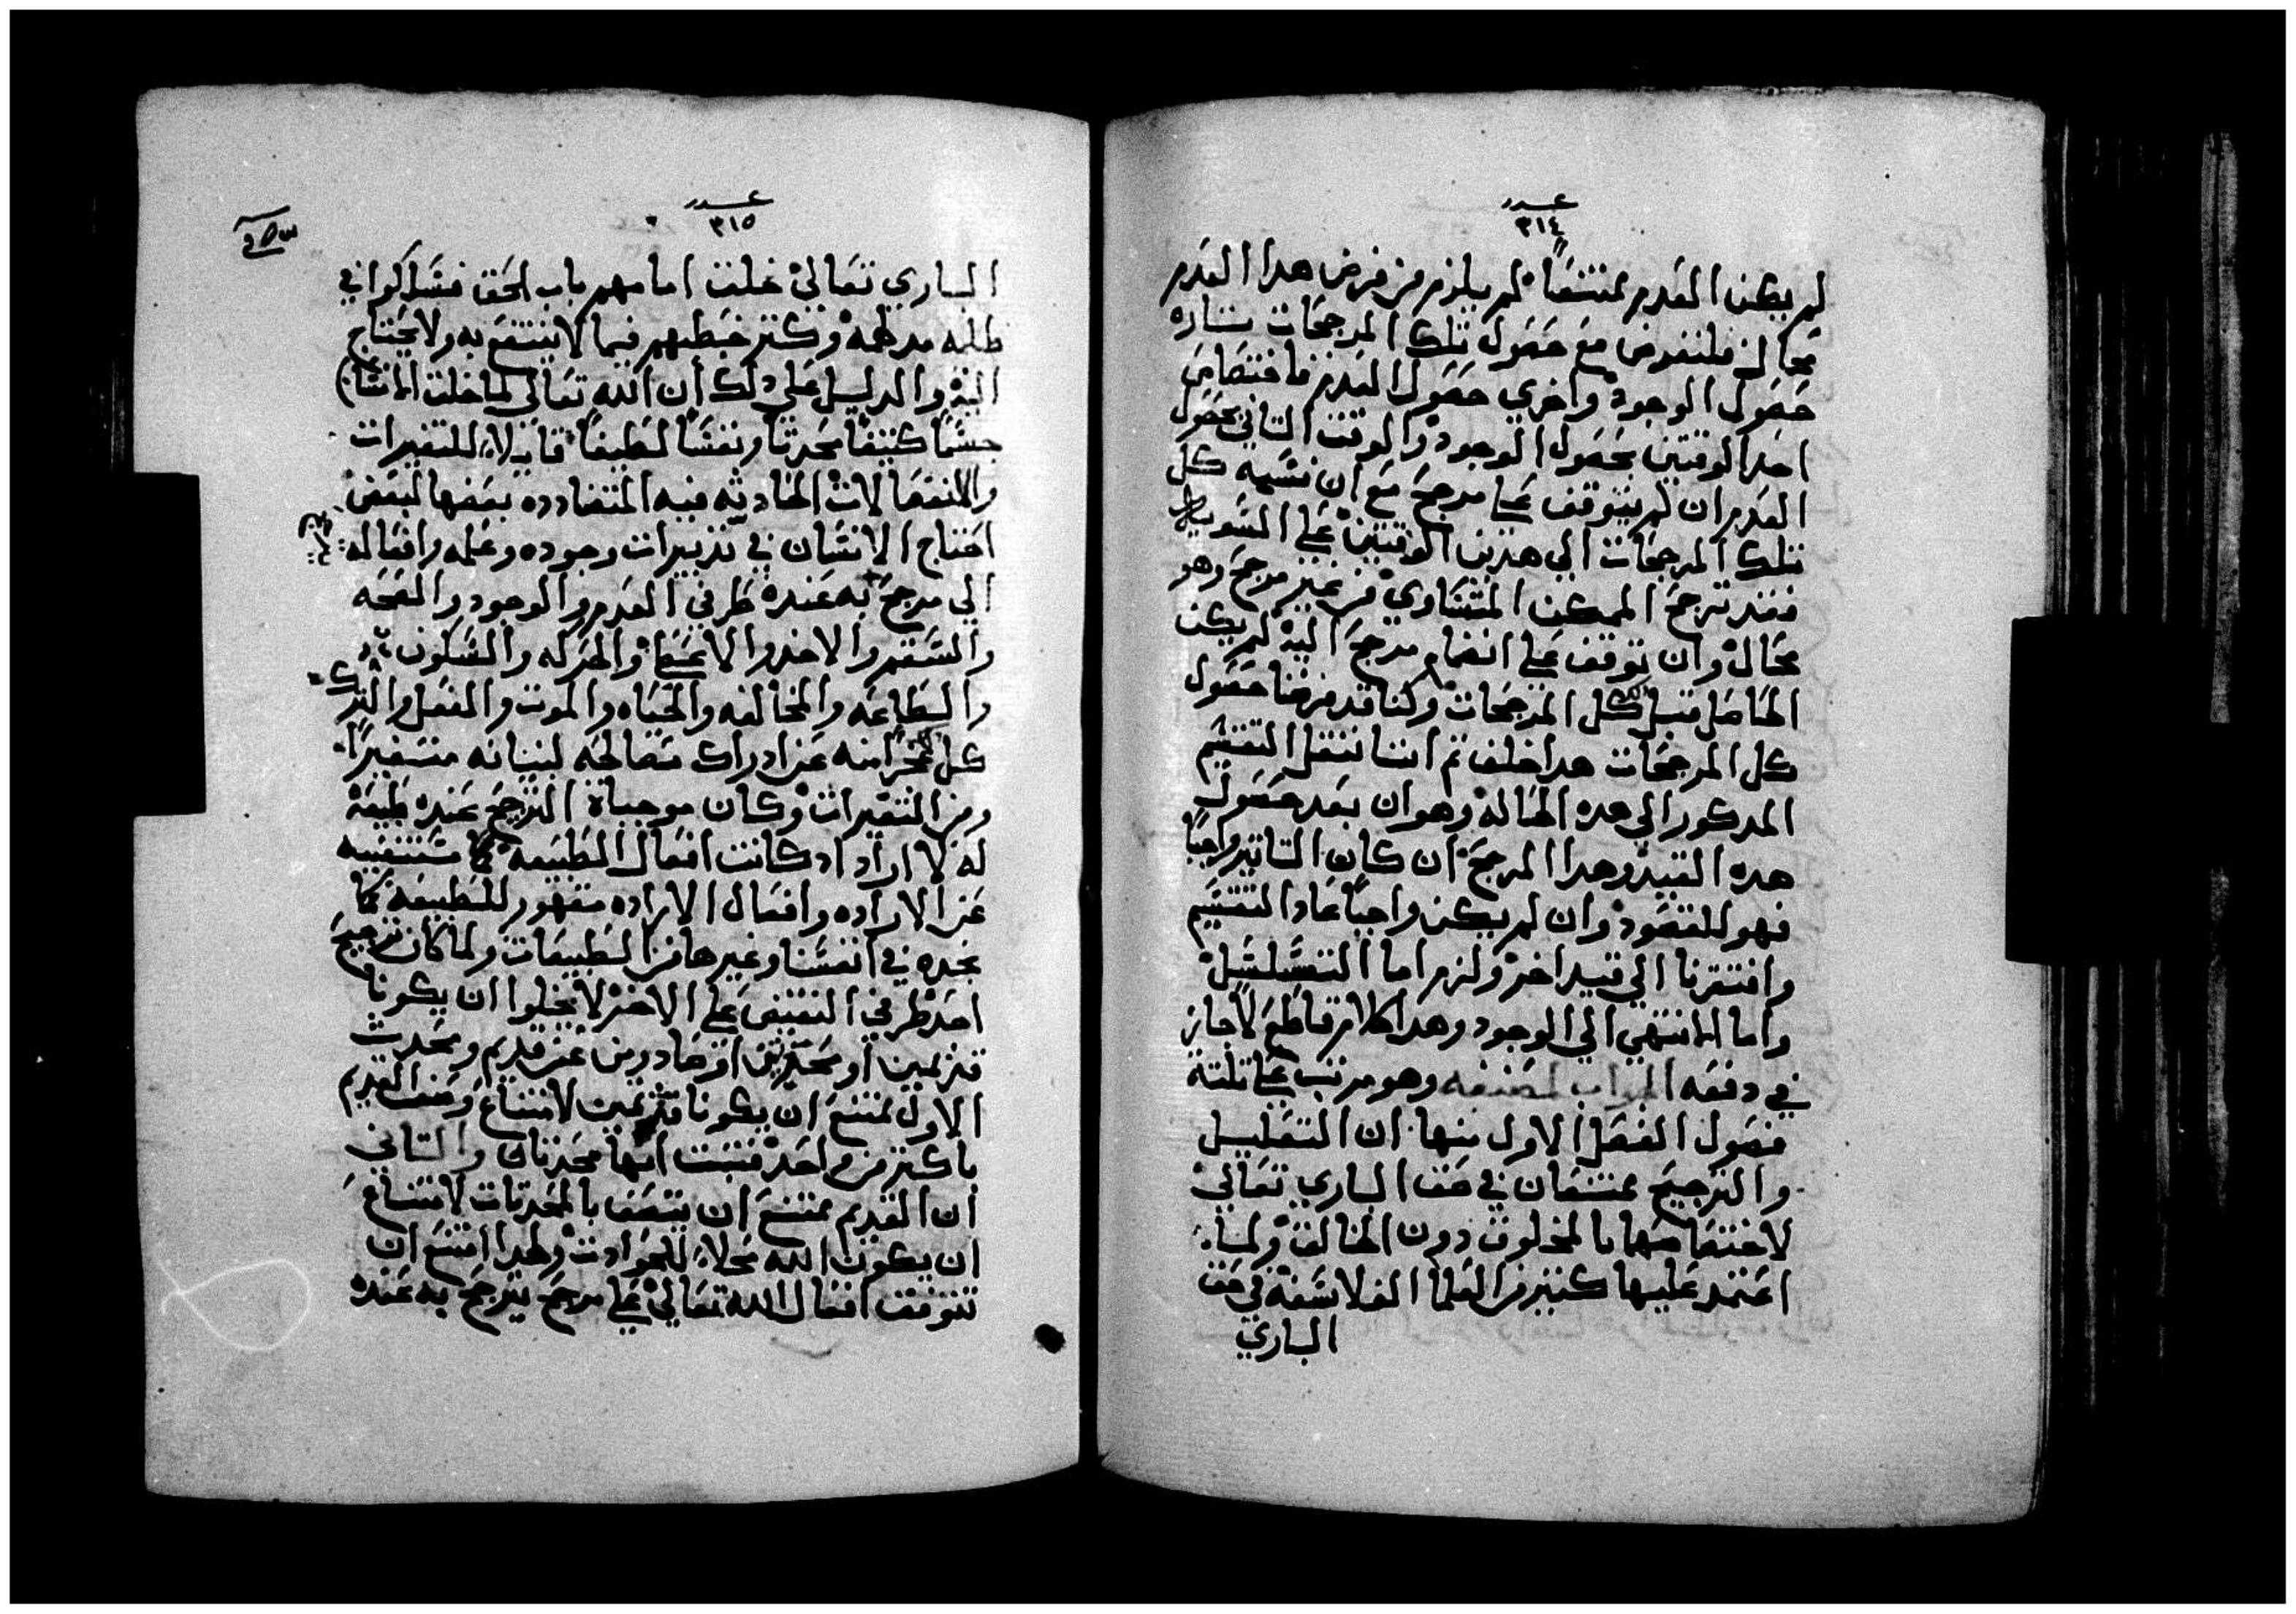 عدد
٣١٤
لم يكن العدم ممتنعاً لم يلزم من فرض هدا العدم
محال فلنفرض مع حصول تلك المرجحات تاره
حصول الوجود واخري حصول العدم فاختصاص
احد الوقتين بحصول الوجود والوقت التاني بحصول
العدم ان لم يتوقف علي مرجح مع ان نسبة كل
تلك المرجحات الي هدين الوقتين علي السويه
فقد ترجح الممكن المتساوي من غير مرجح وهو
محال وان توقف علي انضمام مرجح اليه لم يكن
الحاصل قبل كل المرجحات وكنا قد فرضنا حصول
كل المرجحات هدا خلف تم اننا ننقل التقسيم
المدكور الي هده الحاله وهو ان بعد حصول
هده القيد وهدا المرجح ان كان التاتير واجباً
فهو للمقصود وان لم يكن واجباً عاد التقسيم
وافتقرنا الي قيد اخر ولزم اما التسلسل
واما الانتهي الي الوجود وهدا كلام قاطع لا جاز
في دفعه وهو مرتب علي تلتة
فصول الفصل الاول منها ان التعليل
والترجيح ممتنعان في حق الباري تعالي
لاختصاصها بالمخلوق دون الخالق ولما
اعتمد عليها كتير من العلما الفلاسفة في حق
الباري
عدد
٣١٥
الباري تعالي غلقت امامهم باب الحق فسلكوا في
طلبه مدلهمة وكتر خبطهم فيما لا ينتفع به ولا يحتاج
اليه والدليل علي دلك ان الله تعالي لما خلق الانسان
جسماً كتيفاً محدثاً ونفساً لطيفاً قابلاً للتغيرات
والانفعالات الحادثه فيه المتضادده بعضها لبعض
احتاج الانسان في تدبيرات وجوده وعمله وافعاله
الي مرجح به عنده طرفي العدم والوجود والصحه
والسقم والاخد والاعطا والحركه والسكون
والطاعه والمخالفه والحياه والموت والفعل والترك
كل عن ادراك مصالحه لبنيانه متغيراً
ومن المتغيرات وكان موجباة الترجح عنده طبيعة
له لا اراد اد كانت افعال الطبيعة مستغنيه
عن الاراده وافعال الاراده مقهور للطبيعة كما
نجده في انفسنا وغيرها من الطبيعات ولما كان ترجيح
احد طرفي النقيض علي الاخر لا يخلوا ان يكونا
قديمين او محدثين او صادرين عن قديم ومحدث
الاول ممتنع ان يكونا قديمين لامتناع وصف القديم
باكتر من واحد فتبت انها محدثان والتاني
ان القديم ممتنع ان يتصف بالمحدثات لامتناع
ان يكون الله محلاً للحوادت ولهدا امتنع ان
تتوقف افعال الله تعالي علي مرجح يترجح به عنده